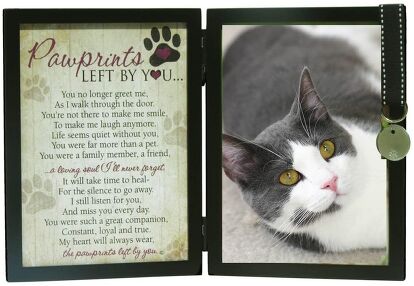 Pawprints
LEFT BY YOU...
You no longer greet me,
As I walk through the door.
You're not there to make me smile,
To make me laugh anymore.
Life seems quiet without you,
You were far more than a pet.
You were a family member, a friend,
a loving soul I'll never forget.
It will take time to heal-
For the silence to go away.
I still listen for you,
And miss you every day.
You were such a great companion,
Constant, loyal and true.
My heart will always wear,
the pawprints left by you.